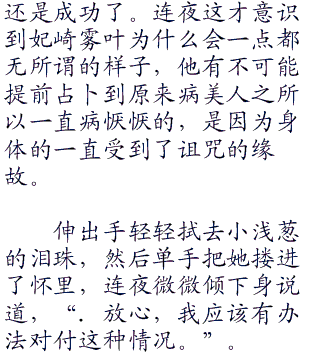 还是成功了。连夜这才意识
到妃崎雾叶为什么会一点都
无所谓的样子，他有不可能
提前占卜到原来病美人之所
以一直病恹恹的，是因为身
体的一直受到了诅咒的缘
故。
伸出手轻轻拭去小浅葱
的泪珠，然后单手把她搂进
了怀里，连夜微微倾下身说
道，“．放心，我应该有办
法对付这种情况。”。